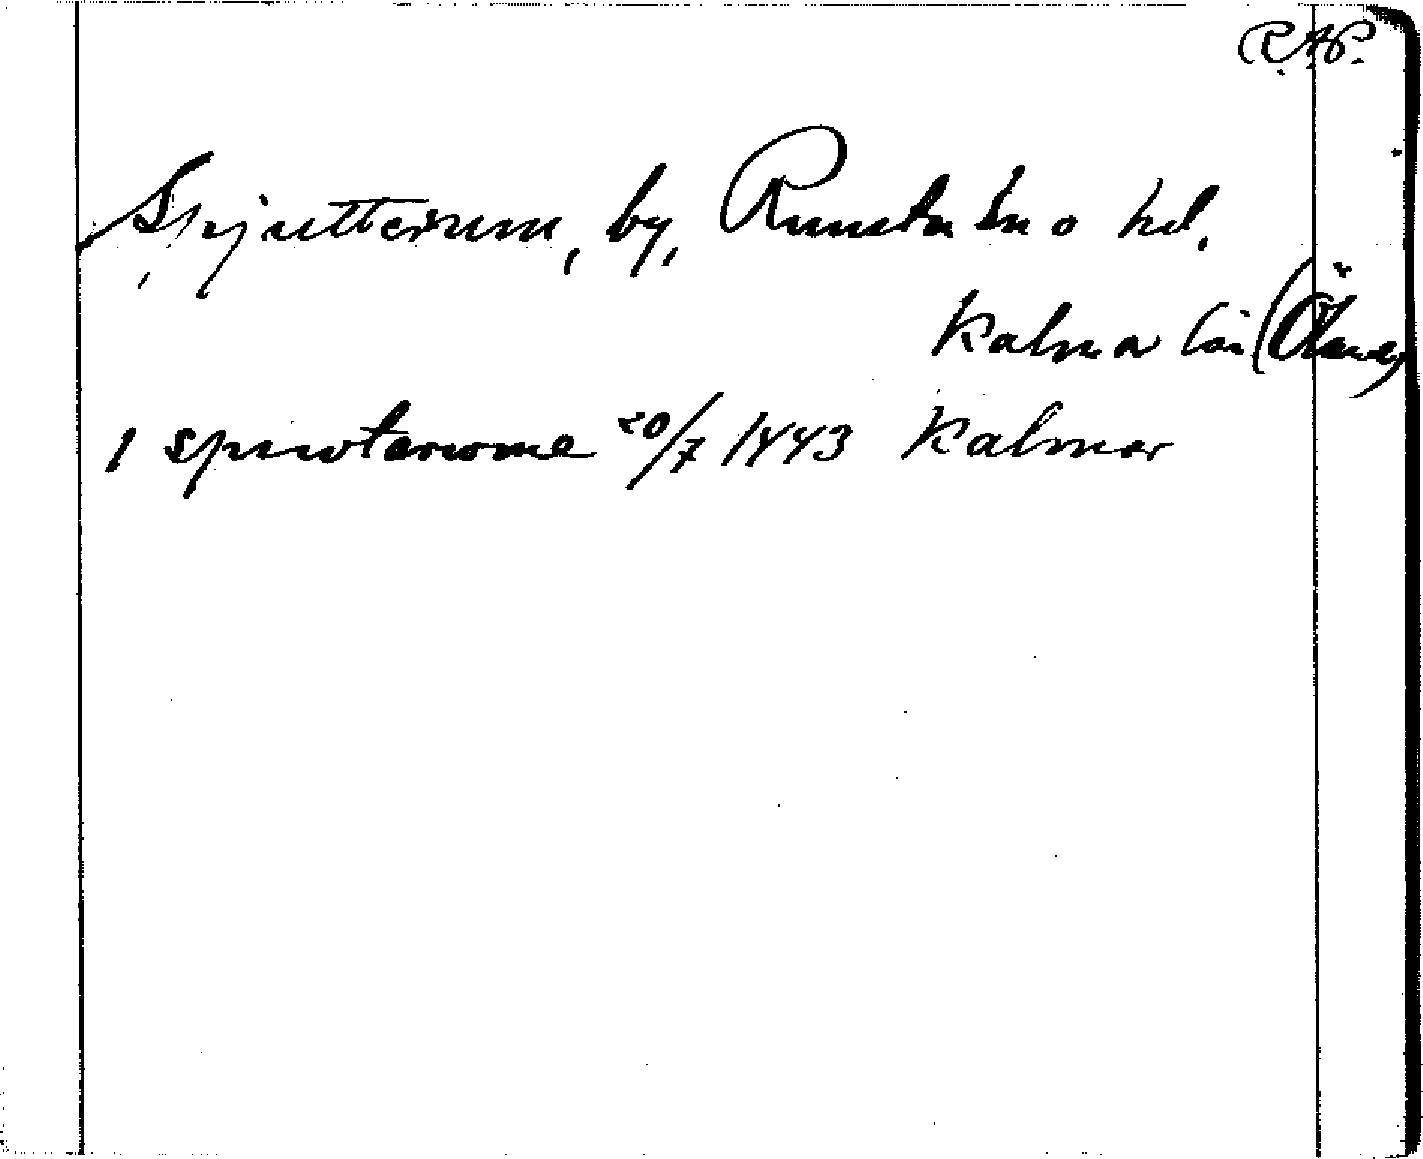 R.A.P.
Spjutterum, by, Runstens sn o hd.
Kalmar län (Öland)
i spiwterwme 20/7 1443 Kalmar